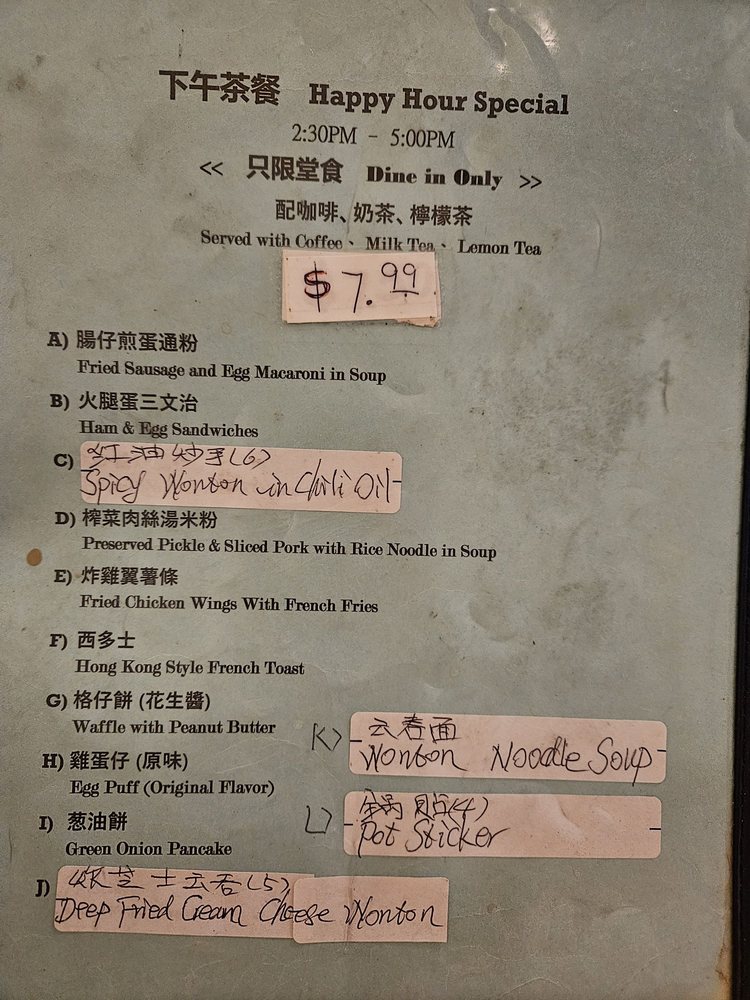 下午茶餐 Happy Hour Special
2:30PM - 5:00PM
<< 只限堂食 Dine in Only >>
配咖啡、奶茶、檸檬茶
Served with Coffee、 Milk Tea、 Lemon Tea
$7.99
A) 腸仔煎蛋通粉
Fried Sausage and Egg Macaroni in Soup
B) 火腿蛋三文治
Ham & Egg Sandwiches
C) 红油炒手(6)
Spicy Wonton in Chili Oil
D) 榨菜肉絲湯米粉
Preserved Pickle & Sliced Pork with Rice Noodle in Soup
E) 炸雞翼薯條
Fried Chicken Wings With French Fries
F) 西多士
Hong Kong Style French Toast
G) 格仔餅 (花生醬)
Waffle with Peanut Butter
H) 雞蛋仔 (原味)
Egg Puff (Original Flavor)
I) 葱油餅
Green Onion Pancake
J) 芝士云吞(5)
Deep Fried Cream Cheese Wonton
K) 云吞面
Wonton Noodle Soup
L) 鍋貼(4)
Pot Sticker